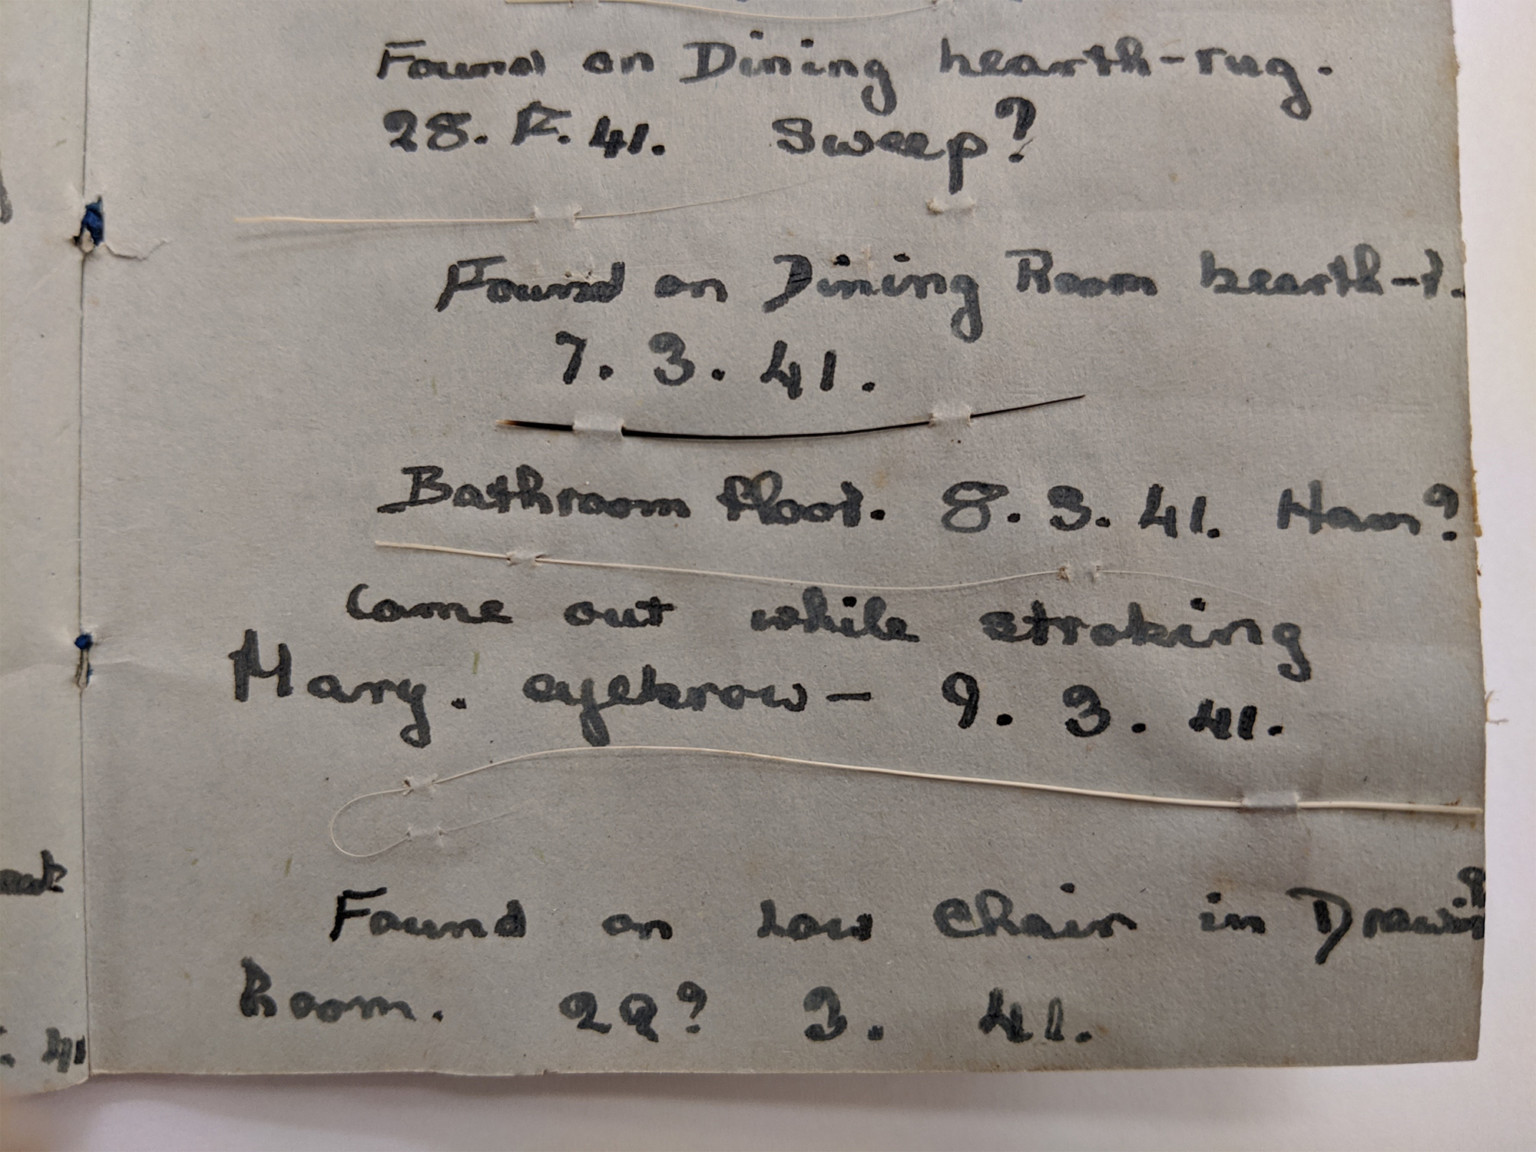 Found on Dining hearth-rug.
28. F. 41. Sweep?
Found on Dining Room hearth-r.
7. 3. 41.
Bathroom floor. 8. 3. 41. Ham?
Came out while stroking
Mary. eyebrow— 9. 3. 41.
Found on low chair in Drawing
Room. 22? 3. 41.
41